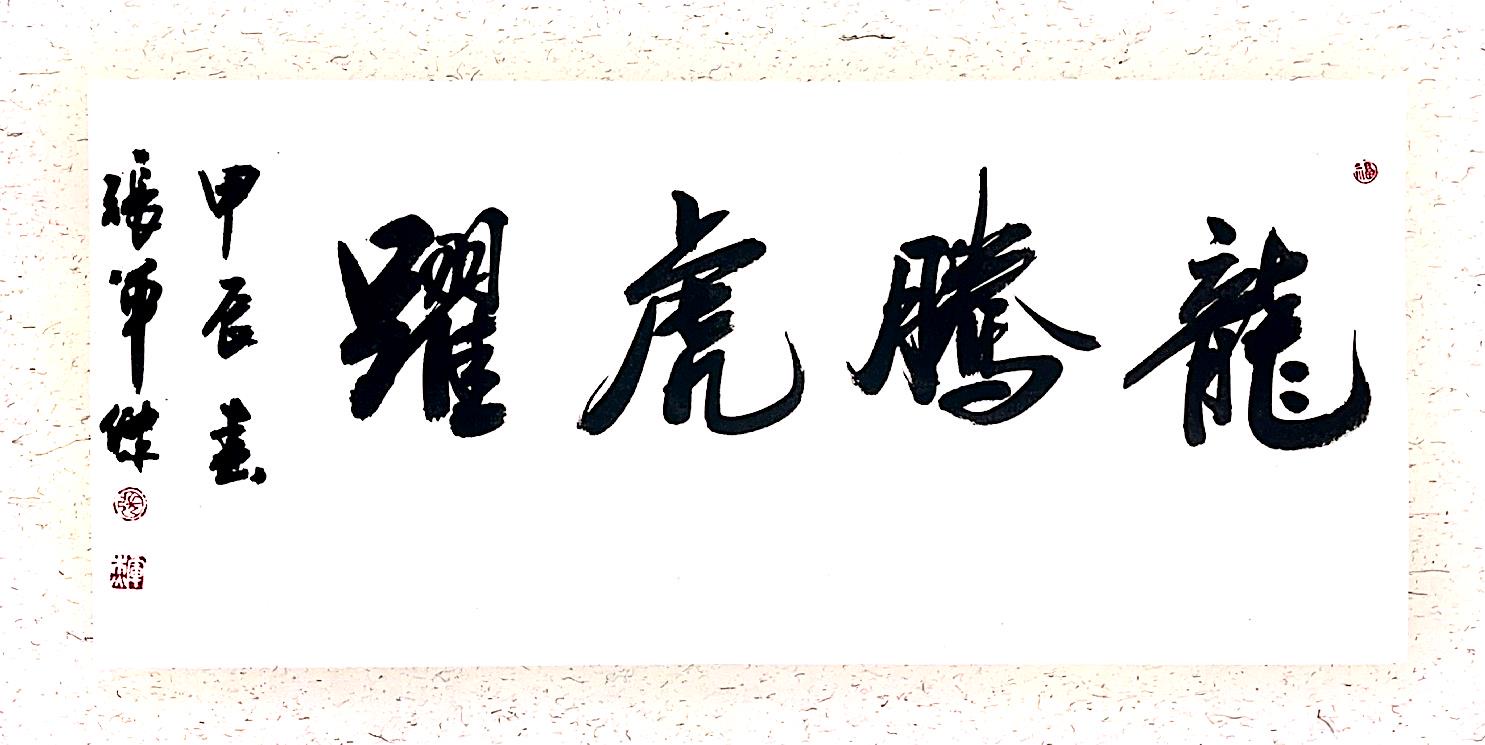 龍騰虎躍
甲辰春
張軍傑
福